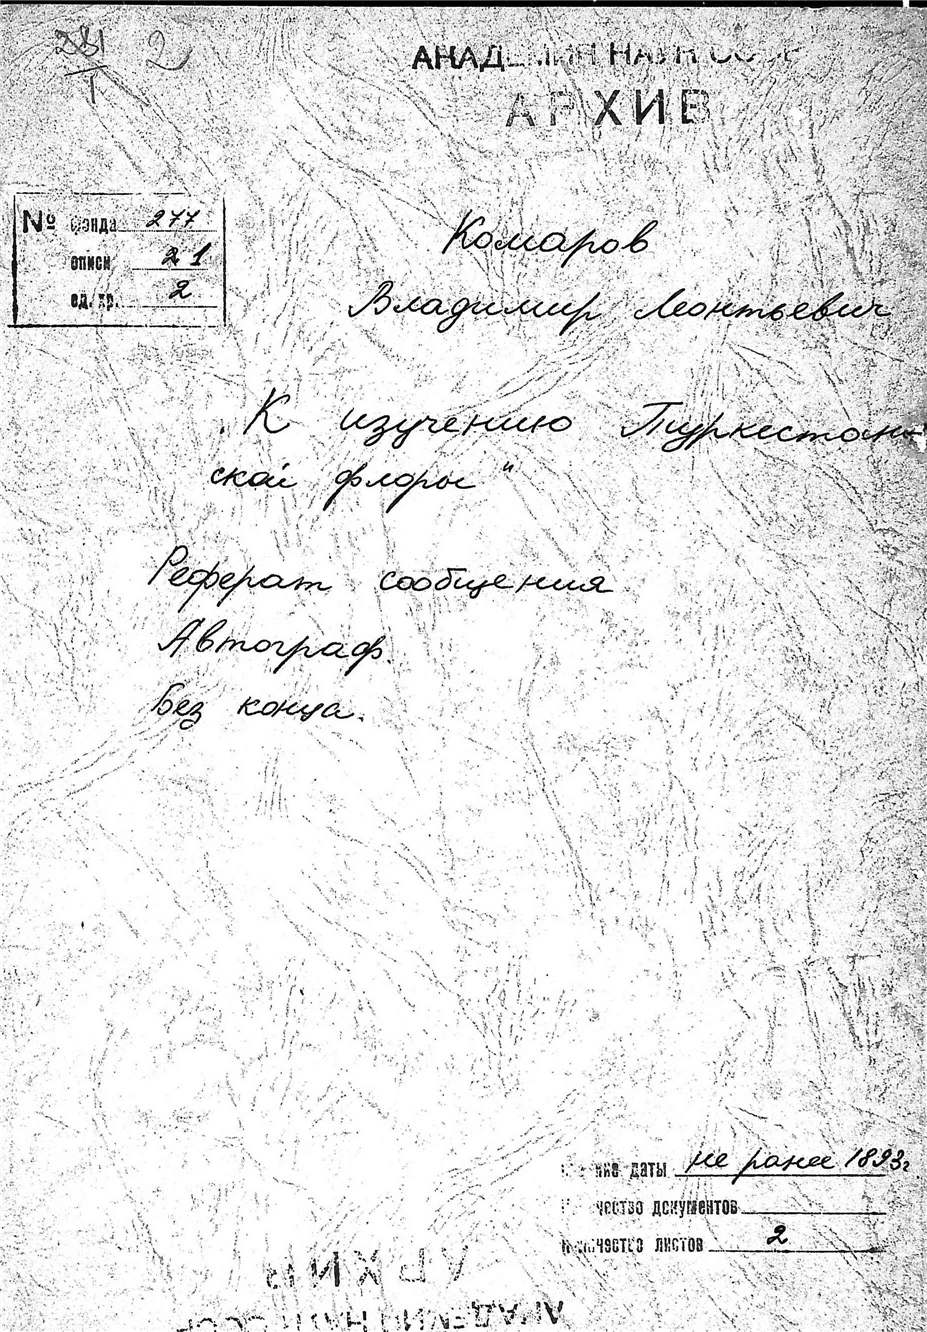 281 2
1
АКАДЕМИЯ НАУК СССР
АРХИВ
№ фонда 277
описи 21
ед. хр. 2
Комаров
Владимир Леонтьевич
„К изучению Туркестан-
ской флоры"
Реферат сообщения
Автограф.
Без конца.
даты не ранее 1893г
Количество документов
Количество листов 2
АРХИВ
АКАДЕМИЯ НАУК СССР